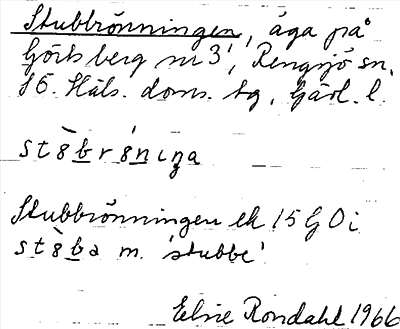 Stubbrönningen, äga på
Görtsberg nr 3¹, Rengsjö sn.
S S. Häls. doms. tg. Gävl. l.
stèbréniŋa
Stubbrönningen ek 15 G Ö i
stèba m. 'stubbe'
Elsie Rondahl 1966